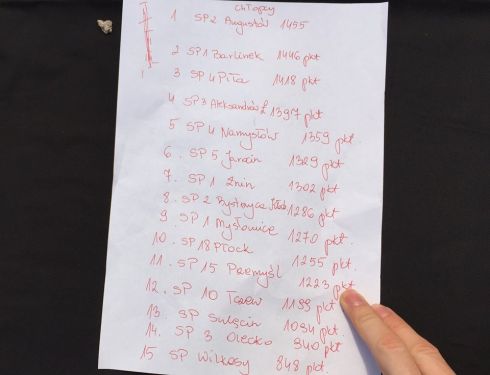 chłopcy
1 SP2 Augustów 1455
2 SP1 Barlinek 1446 pkt
3 SP4 Piła 1418 pkt
4 SP3 Aleksandrów Ł 1397 pkt
5 SP4 Namysłów 1359 pkt.
6. SP5 Jarocin 1329 pkt
7. SP1 Żnin 1302 pkt
8. SP2 Bystrzyca 1286 pkt
9 SP1 Mysłowice 1270 pkt.
10. SP18 Płock 1255 pkt.
11. SP15 Przemyśl 1223 pkt
12. SP10 Tczew 1199 pkt
13. SP Sulęcin 1094 pkt.
14. SP3 Olecko 940 pkt.
15 SP Wilkasy 848 pkt.